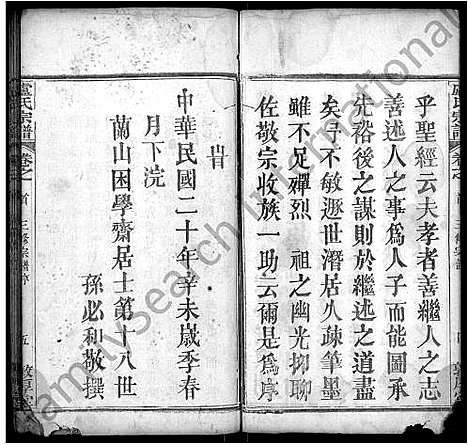 乎聖經云夫孝者善繼人之志
善述人之事為人子而能圖承
先裕後之謀則於繼述之道盡
矣予不敏遯世潛居久疎筆墨
雖不足殫烈　祖之幽光抑聊
佐敬宗收族一助云爾是為序
旹
中華民國二十年辛未歲季春
月下浣
蘭山困學齋居士第十八世
孫必和敬撰
盧氏宗譜
卷之首
三修宗譜序
五
敦厚堂
familysearch international